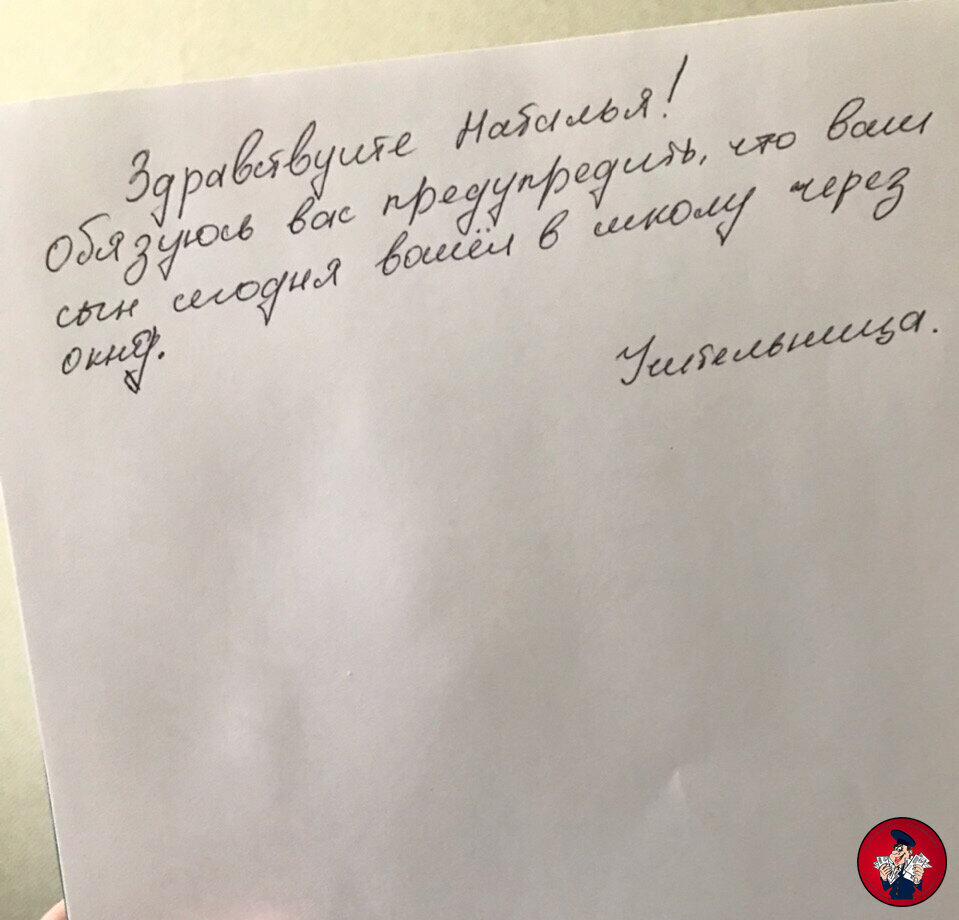 Здравствуите Наталья!
Обязуюсь вас предупредить, что ваш
сын сегодня вошёл в школу через
окно.
Учительница.